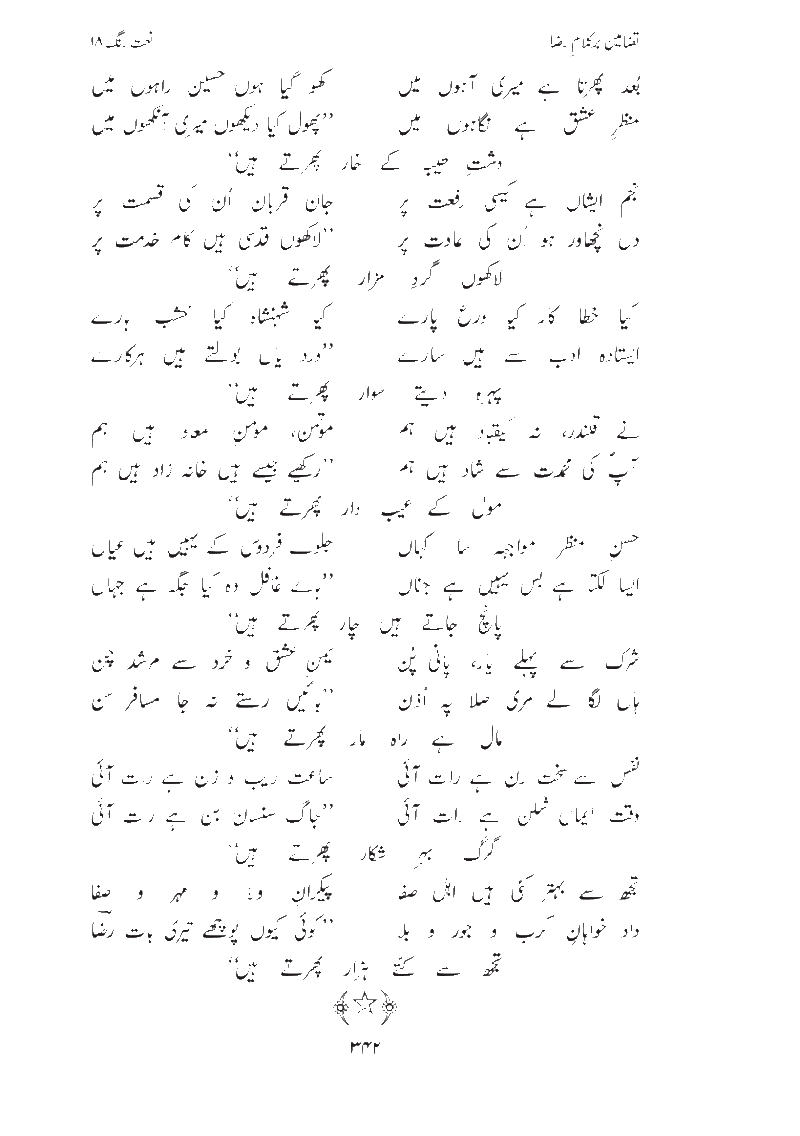 تضامین بر کلامِ رضا نعت رنگ ۱۸
بُعد پھرتا ہے میری آہوں میں کھو گیا ہوں حسین راہوں میں
منظرِ عشق ہے نگاہوں میں ’’پھول کیا دیکھوں میری آنکھوں میں
دشتِ طیبہ کے خار پھرتے ہیں‘‘
نجم ایشاں ہے کیسی رفعت پر جان قربان اُن کی قسمت پر
دل نچھاور ہو اُن کی عادت پر ’’لاکھوں قدسی ہیں کام خدمت پر
لاکھوں گردِ مزار پھرتے ہیں‘‘
کیا خطا کار کیا ورع پارے کیا شہنشاہ کیا
ایستادہ ادب سے ہیں سارے ’’ورد یاں بولتے ہیں ہرکارے
پہرہ دیتے سوار پھرتے ہیں‘‘
نے قلندر، نہ کیقباد ہیں ہم مومن، مومنِ معاد ہیں ہم
آپؐ کی مدحت سے شاد ہیں ہم ’’رکھیے جیسے ہیں خانہ زاد ہیں ہم
مول کے عیب دار پھرتے ہیں‘‘
حسنِ منظر مواجہہ سا کہاں جلوے فردوس کے یہیں ہیں عیاں
ایسا لگتا ہے بس یہیں ہے جناں ’’ہائے غافل وہ کیا جگہ ہے جہاں
پانچ جاتے ہیں چار پھرتے ہیں‘‘
شرک سے پہلے یار، پانی پُن یمنِ عشق و خرد سے مرشد چن
ہاں لگا لے مری صلا پہ اُذن ’’بائیں رستے نہ جا مسافر سن
مال ہے راہ مار پھرتے ہیں‘‘
نفس سے سخت رن ہے رات آئی ساعت ریب و زن ہے رات آئی
وقت ایماں شکن ہے رات آئی ’’جاگ سنسان بن ہے رات آئی
گرگ بہرِ شکار پھرتے ہیں‘‘
تجھ سے بہتر کئی ہیں اہلِ صفا پیکرانِ وفا و مہر و صفا
داد خواہانِ کرب و جور و بلا ’’کوئی کیوں پوچھے تیری بات رضاؔ
تجھ سے کتنے ہزار پھرتے ہیں‘‘
۳۴۲